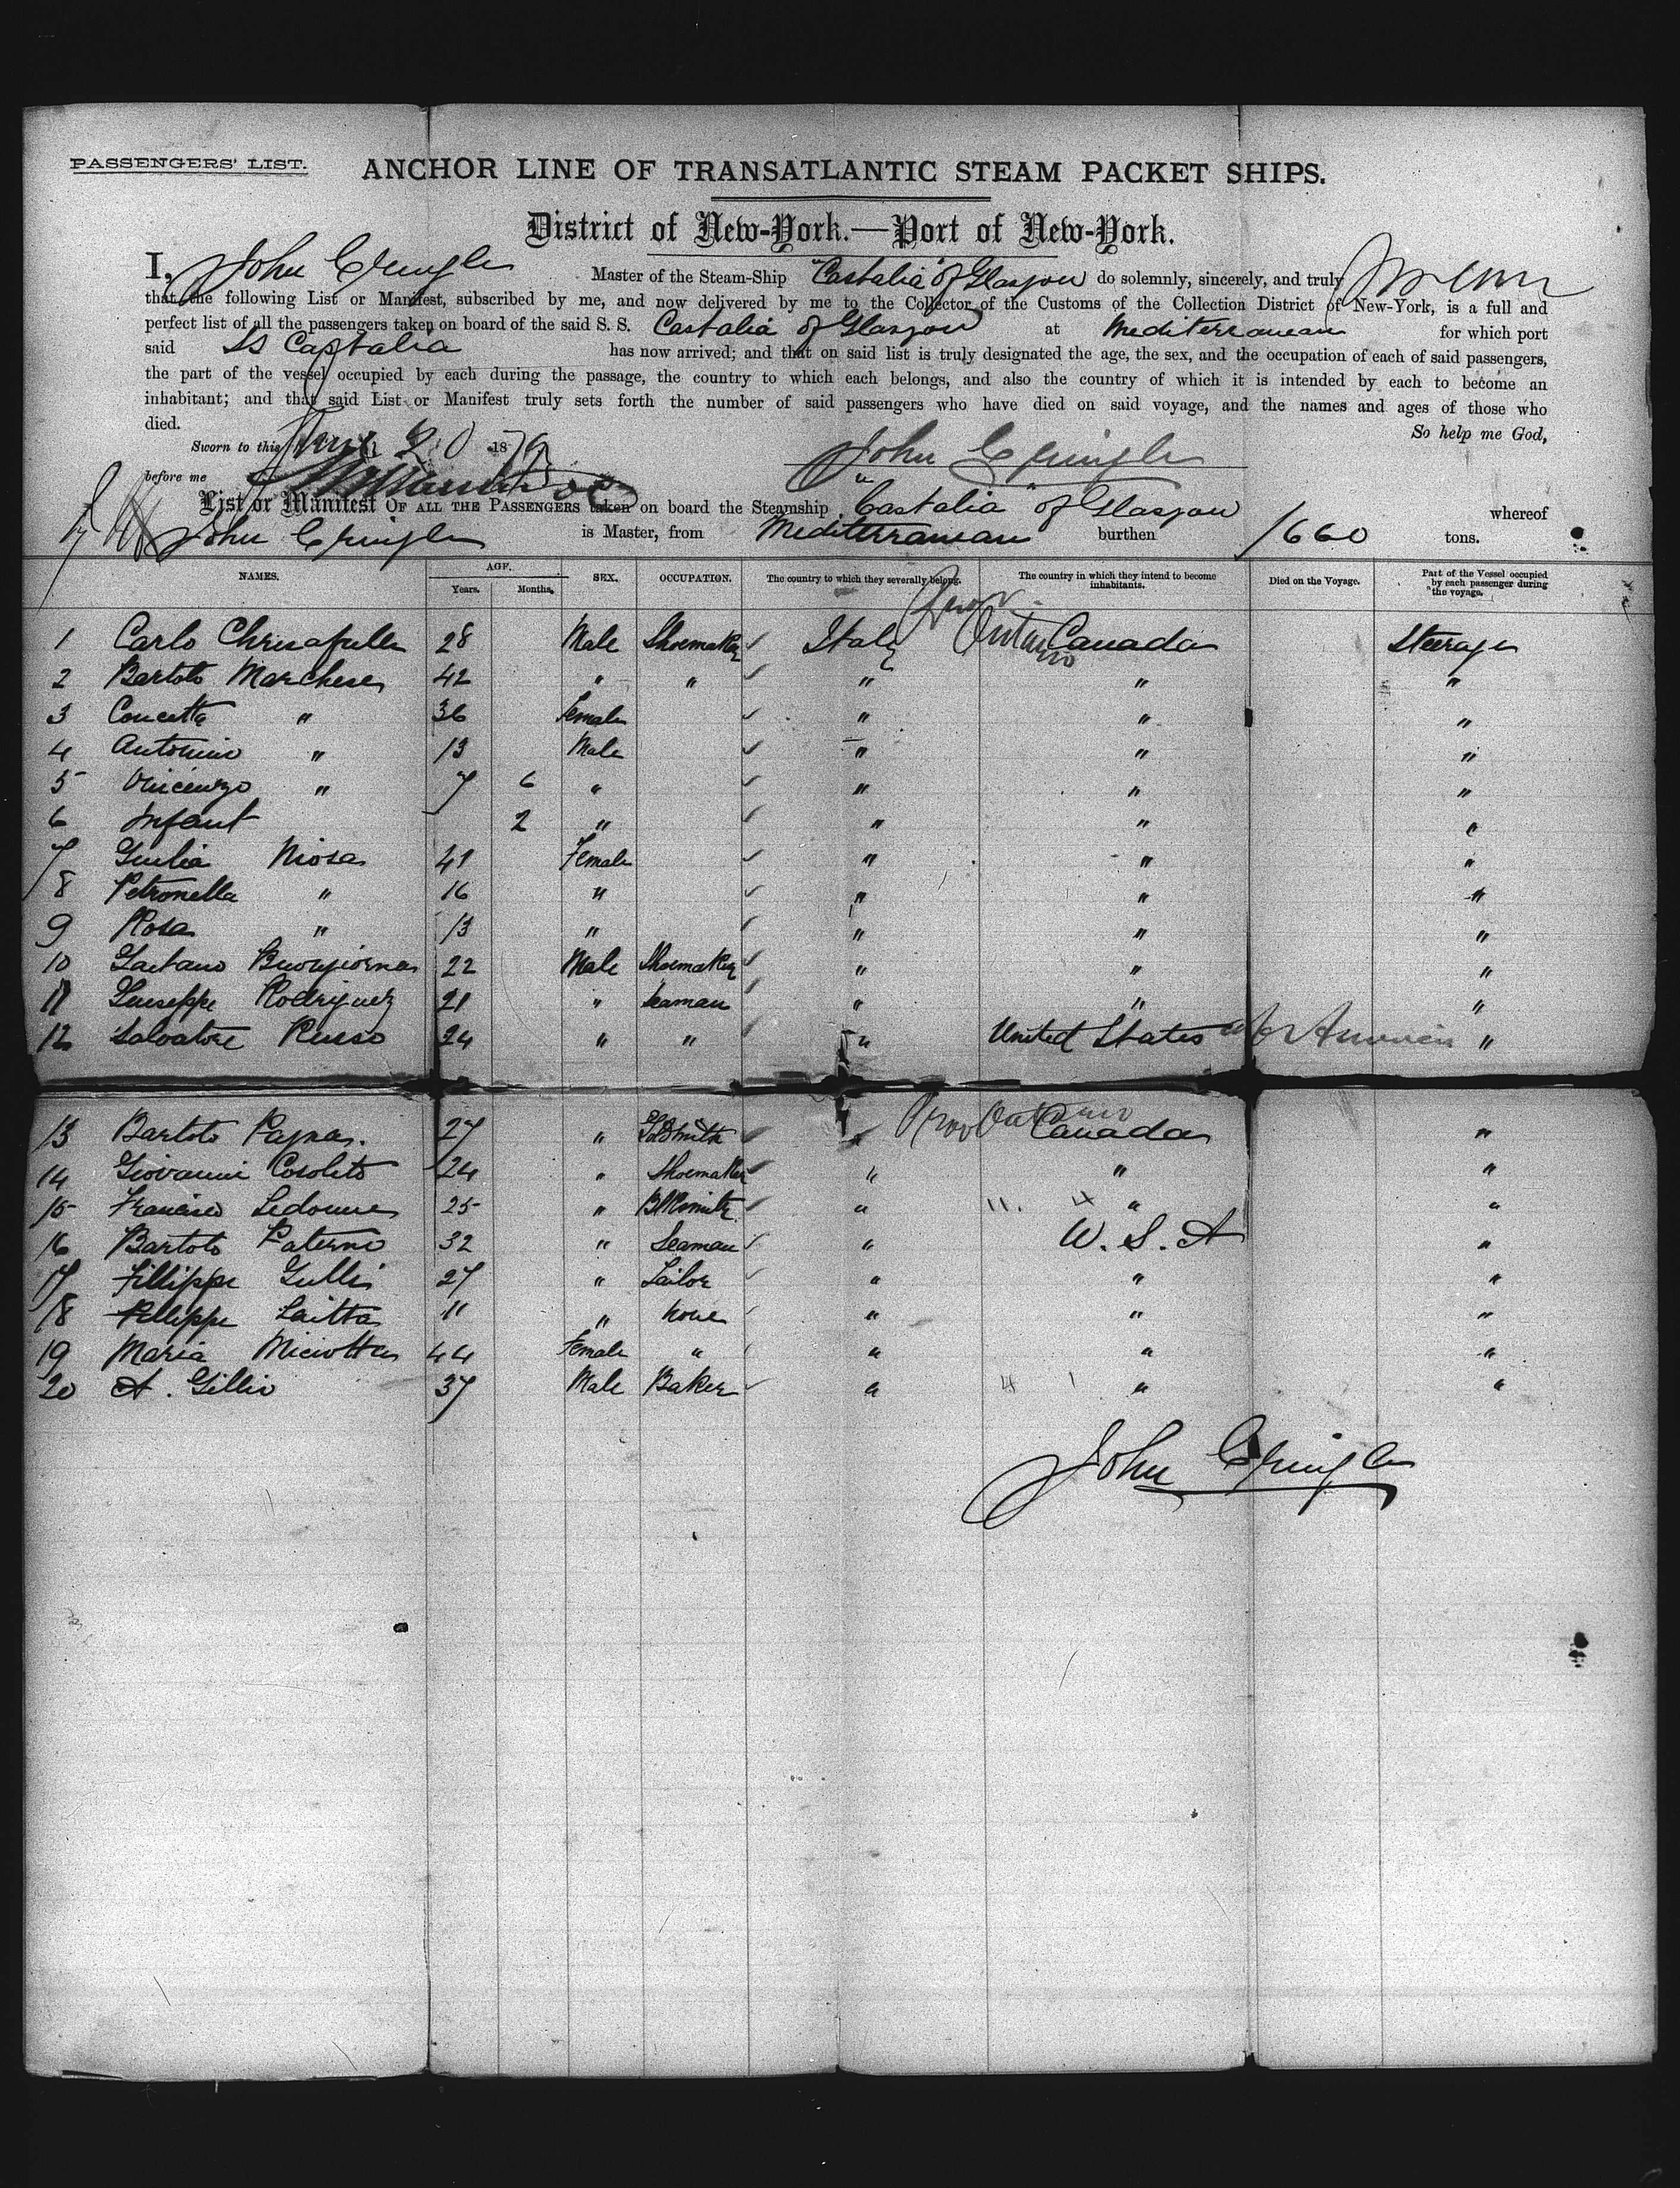 PASSENGERS' LIST. ANCHOR LINE OF TRANSATLANTIC STEAM PACKET SHIPS.
District of New-York.—Port of New-York.
I, John Master of the Steam-Ship "Castalia" of Glasgow do solemnly, sincerely, and truly
that the following List or Manifest, subscribed by me, and now delivered by me to the Collector of the Customs of the Collection District of New-York, is a full and
perfect list of all the passengers taken on board of the said S. S. Castalia of Glasgow at Mediterranean for which port
said SS Castalia has now arrived; and that on said list is truly designated the age, the sex, and the occupation of each of said passengers,
the part of the vessel occupied by each during the passage, the country to which each belongs, and also the country of which it is intended by each to become an
inhabitant; and that said List or Manifest truly sets forth the number of said passengers who have died on said voyage, and the names and ages of those who
died.
So help me God,
Sworn to this 20 1879 John
before me
List or Manifest OF ALL THE PASSENGERS taken on board the Steamship "Castalia" of Glasgow whereof
John is Master, from Mediterranean burthen 1660 tons.
NAMES. AGE. Years. Months. SEX. OCCUPATION. The country to which they severally belong. The country in which they intend to become inhabitants. Died on the Voyage. Part of the Vessel occupied by each passenger during the voyage.
1 Carlo 28 Male Shoemaker Italy Ontario Canada Steerage
2 Bartolo Marchese 42 " " " " "
3 Concetta " 36 Female " " "
4 Antonino " 13 Male " " "
5 Vincenzo " 7 6 " " " "
6 Infant 2 " " " "
7 Giulia Niosa 41 Female " " "
8 Petronella " 16 " " " "
9 Rosa " 13 " " " "
10 Gaetano Buongiorno 22 Male Shoemaker " " "
11 Giuseppe Rodriquez 21 " Seaman " " "
12 Salvatore Russo 24 " " " United States of America "
13 Bartolo 27 " Goldsmith " Prov Ontario Canada "
14 Giovanni Cosolito 24 " Shoemaker " " "
15 Francisco Ledonne 25 " Blksmith " " "
16 Bartolo Paterno 32 " Seaman " U. S. A "
17 Fillippe Gulli 27 " Tailor " " "
18 Fillippe Saitta 11 " none " " "
19 Maria 44 Female " " " "
20 A. Gillio 37 Male Baker " " "
John